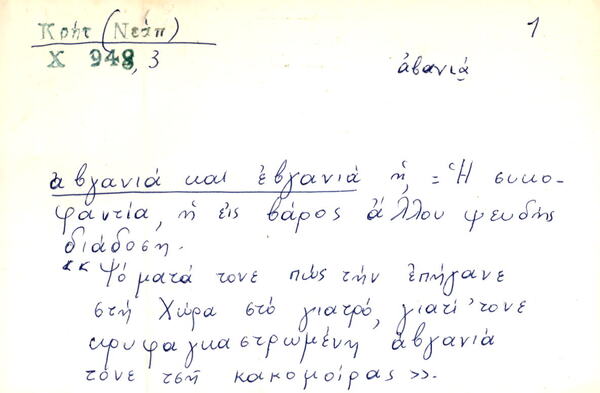 Κρήτ (Νεάπ)
1
Χ 948, 3
ἀβανιά
ἀβγανιά και ἐβγανιά ἡ, = Ἡ συκο-
φαντία, ἡ εἰς βάρος ἄλλου ψευδής
διάδοση.
«Ψόματά τονε πώς τήν ἐπήγανε
στή Χώρα στό γιατρό, γιατί 'τονε
κρυφαγκαστρωμένη ἀβγανιά
τόνε τσῆ κακομοίρας».